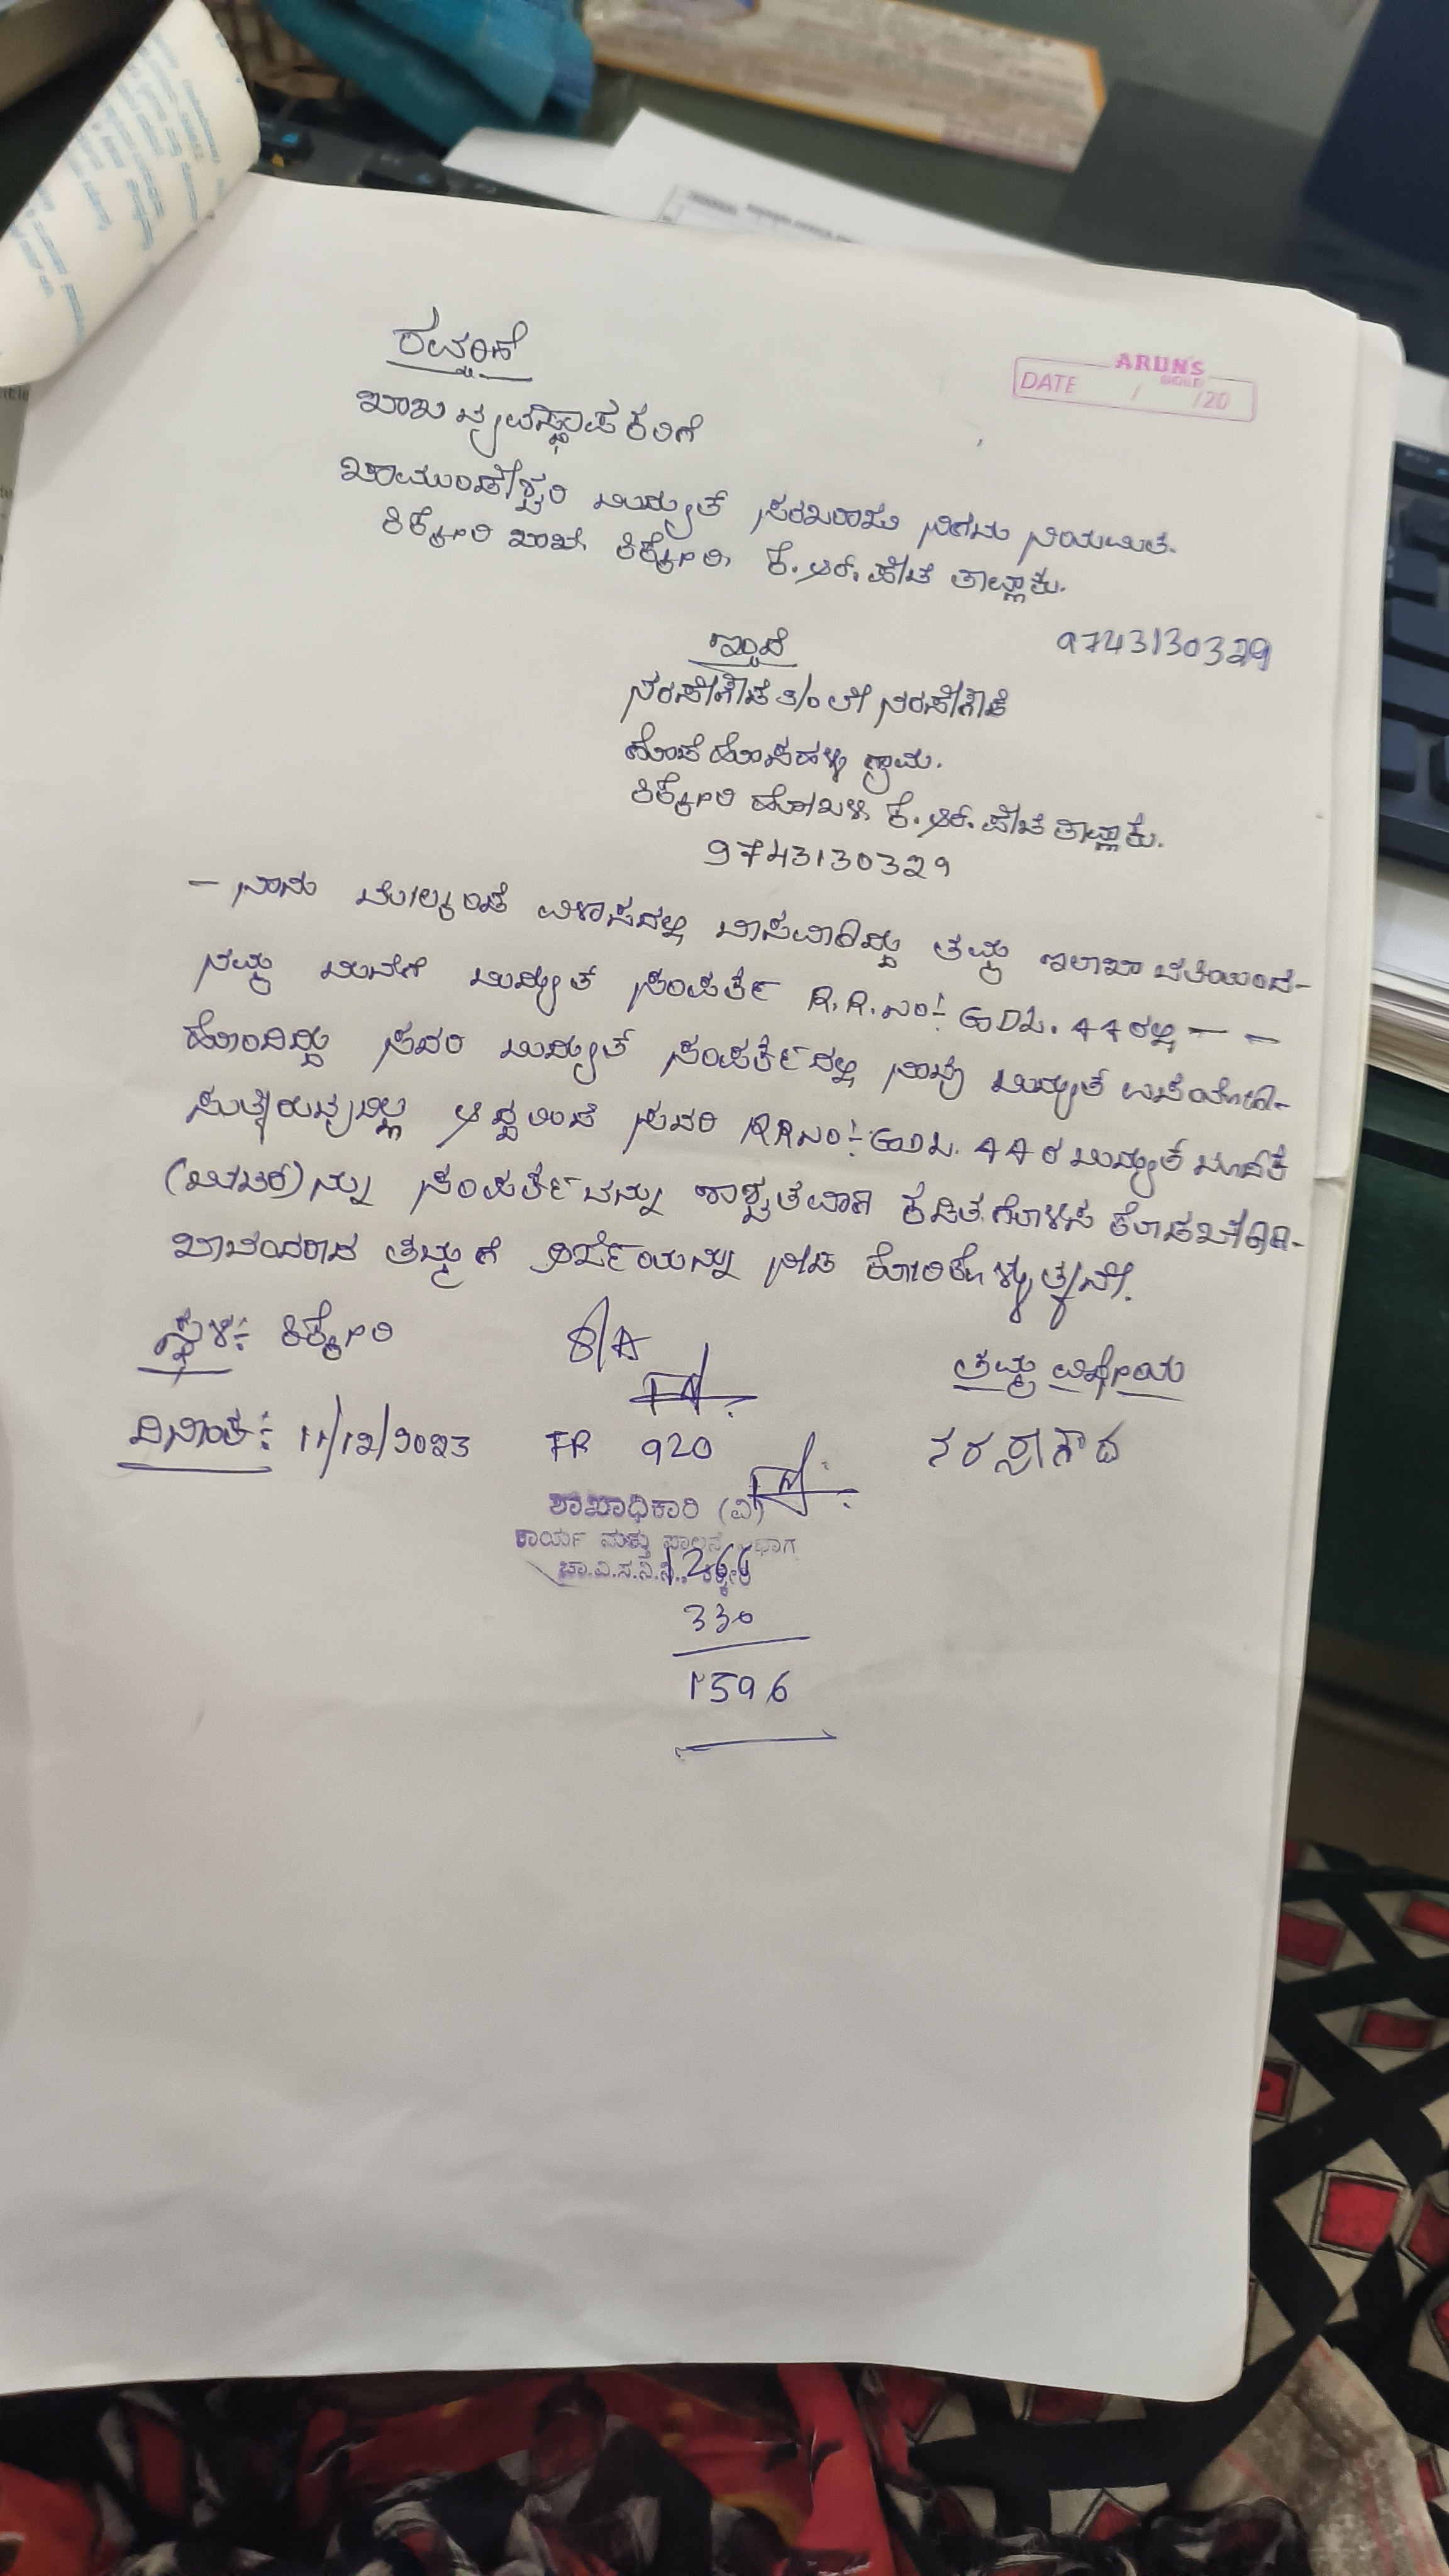 ರವರಿಗೆ
ARUNS
GOLD
DATE / /20
ಶಾಖಾ ವ್ಯವಸ್ಥಾಪಕರಿಗೆ
ಚಾಮುಂಡೇಶ್ವರಿ ವಿದ್ಯುತ್ ಸರಬರಾಜು ನಿಗಮ ನಿಯಮಿತ.
ಕಿಕ್ಕೇರಿ ಶಾಖೆ, ಕಿಕ್ಕೇರಿ, ಕೆ.ಆರ್.ಪೇಟೆ ತಾಲ್ಲೂಕು.
ಇಂದ
9743130329
ನರಸೇಗೌಡ S/o ಲೇ ನರಸೇಗೌಡ
ಹೊಸಹಳ್ಳಿ ಗ್ರಾಮ.
ಕಿಕ್ಕೇರಿ ಹೋಬಳಿ, ಕೆ.ಆರ್.ಪೇಟೆ ತಾಲ್ಲೂಕು.
9743130329
— ನಾನು ಮೇಲ್ಕಂಡ ವಿಳಾಸದಲ್ಲಿ ವಾಸವಾಗಿದ್ದು ತಮ್ಮ ಇಲಾಖಾ ವತಿಯಿಂದ-
ನಮ್ಮ ಮನೆಗೆ ವಿದ್ಯುತ್ ಸಂಪರ್ಕ R.R.ನಂ:- GDL. 44 ರಲ್ಲಿ — —
ಹೊಂದಿದ್ದು ಸದರಿ ವಿದ್ಯುತ್ ಸಂಪರ್ಕದಲ್ಲಿ ನಾವು ವಿದ್ಯುತ್ ಉಪಯೋಗಿ-
ಸುತ್ತಿರುವುದಿಲ್ಲ ಆದ್ದರಿಂದ ಸದರಿ RRನಂ:- GDL. 44 ರ ವಿದ್ಯುತ್ ಮಾಪಕ
(ಮೀಟರ್)ನ್ನು ಸಂಪರ್ಕವನ್ನು ಶಾಶ್ವತವಾಗಿ ಕಡಿತಗೊಳಿಸಿ ಕೊಡಬೇಕಾಗಿ-
ಭಾವಂದರಾದ ತಮ್ಮಗೆ ಅರ್ಜಿಯನ್ನು ನೀಡಿ ಕೋರಿಕೊಳ್ಳುತ್ತೇನೆ.
ಸ್ಥಳ:- ಕಿಕ್ಕೇರಿ
ತಮ್ಮ ವಿಶ್ವಾಸಿಯ
ದಿನಾಂಕ:- 11/12/2023
FR 920
ನರಸೇಗೌಡ
ಶಾಖಾಧಿಕಾರಿ (ವಿ)
ಕಾರ್ಯ ಮತ್ತು ಪಾಲನೆ ವಿಭಾಗ
ಚಾ.ವಿ.ಸ.ನಿ.ನಿ., ಕಿಕ್ಕೇರಿ
1266
330
1596